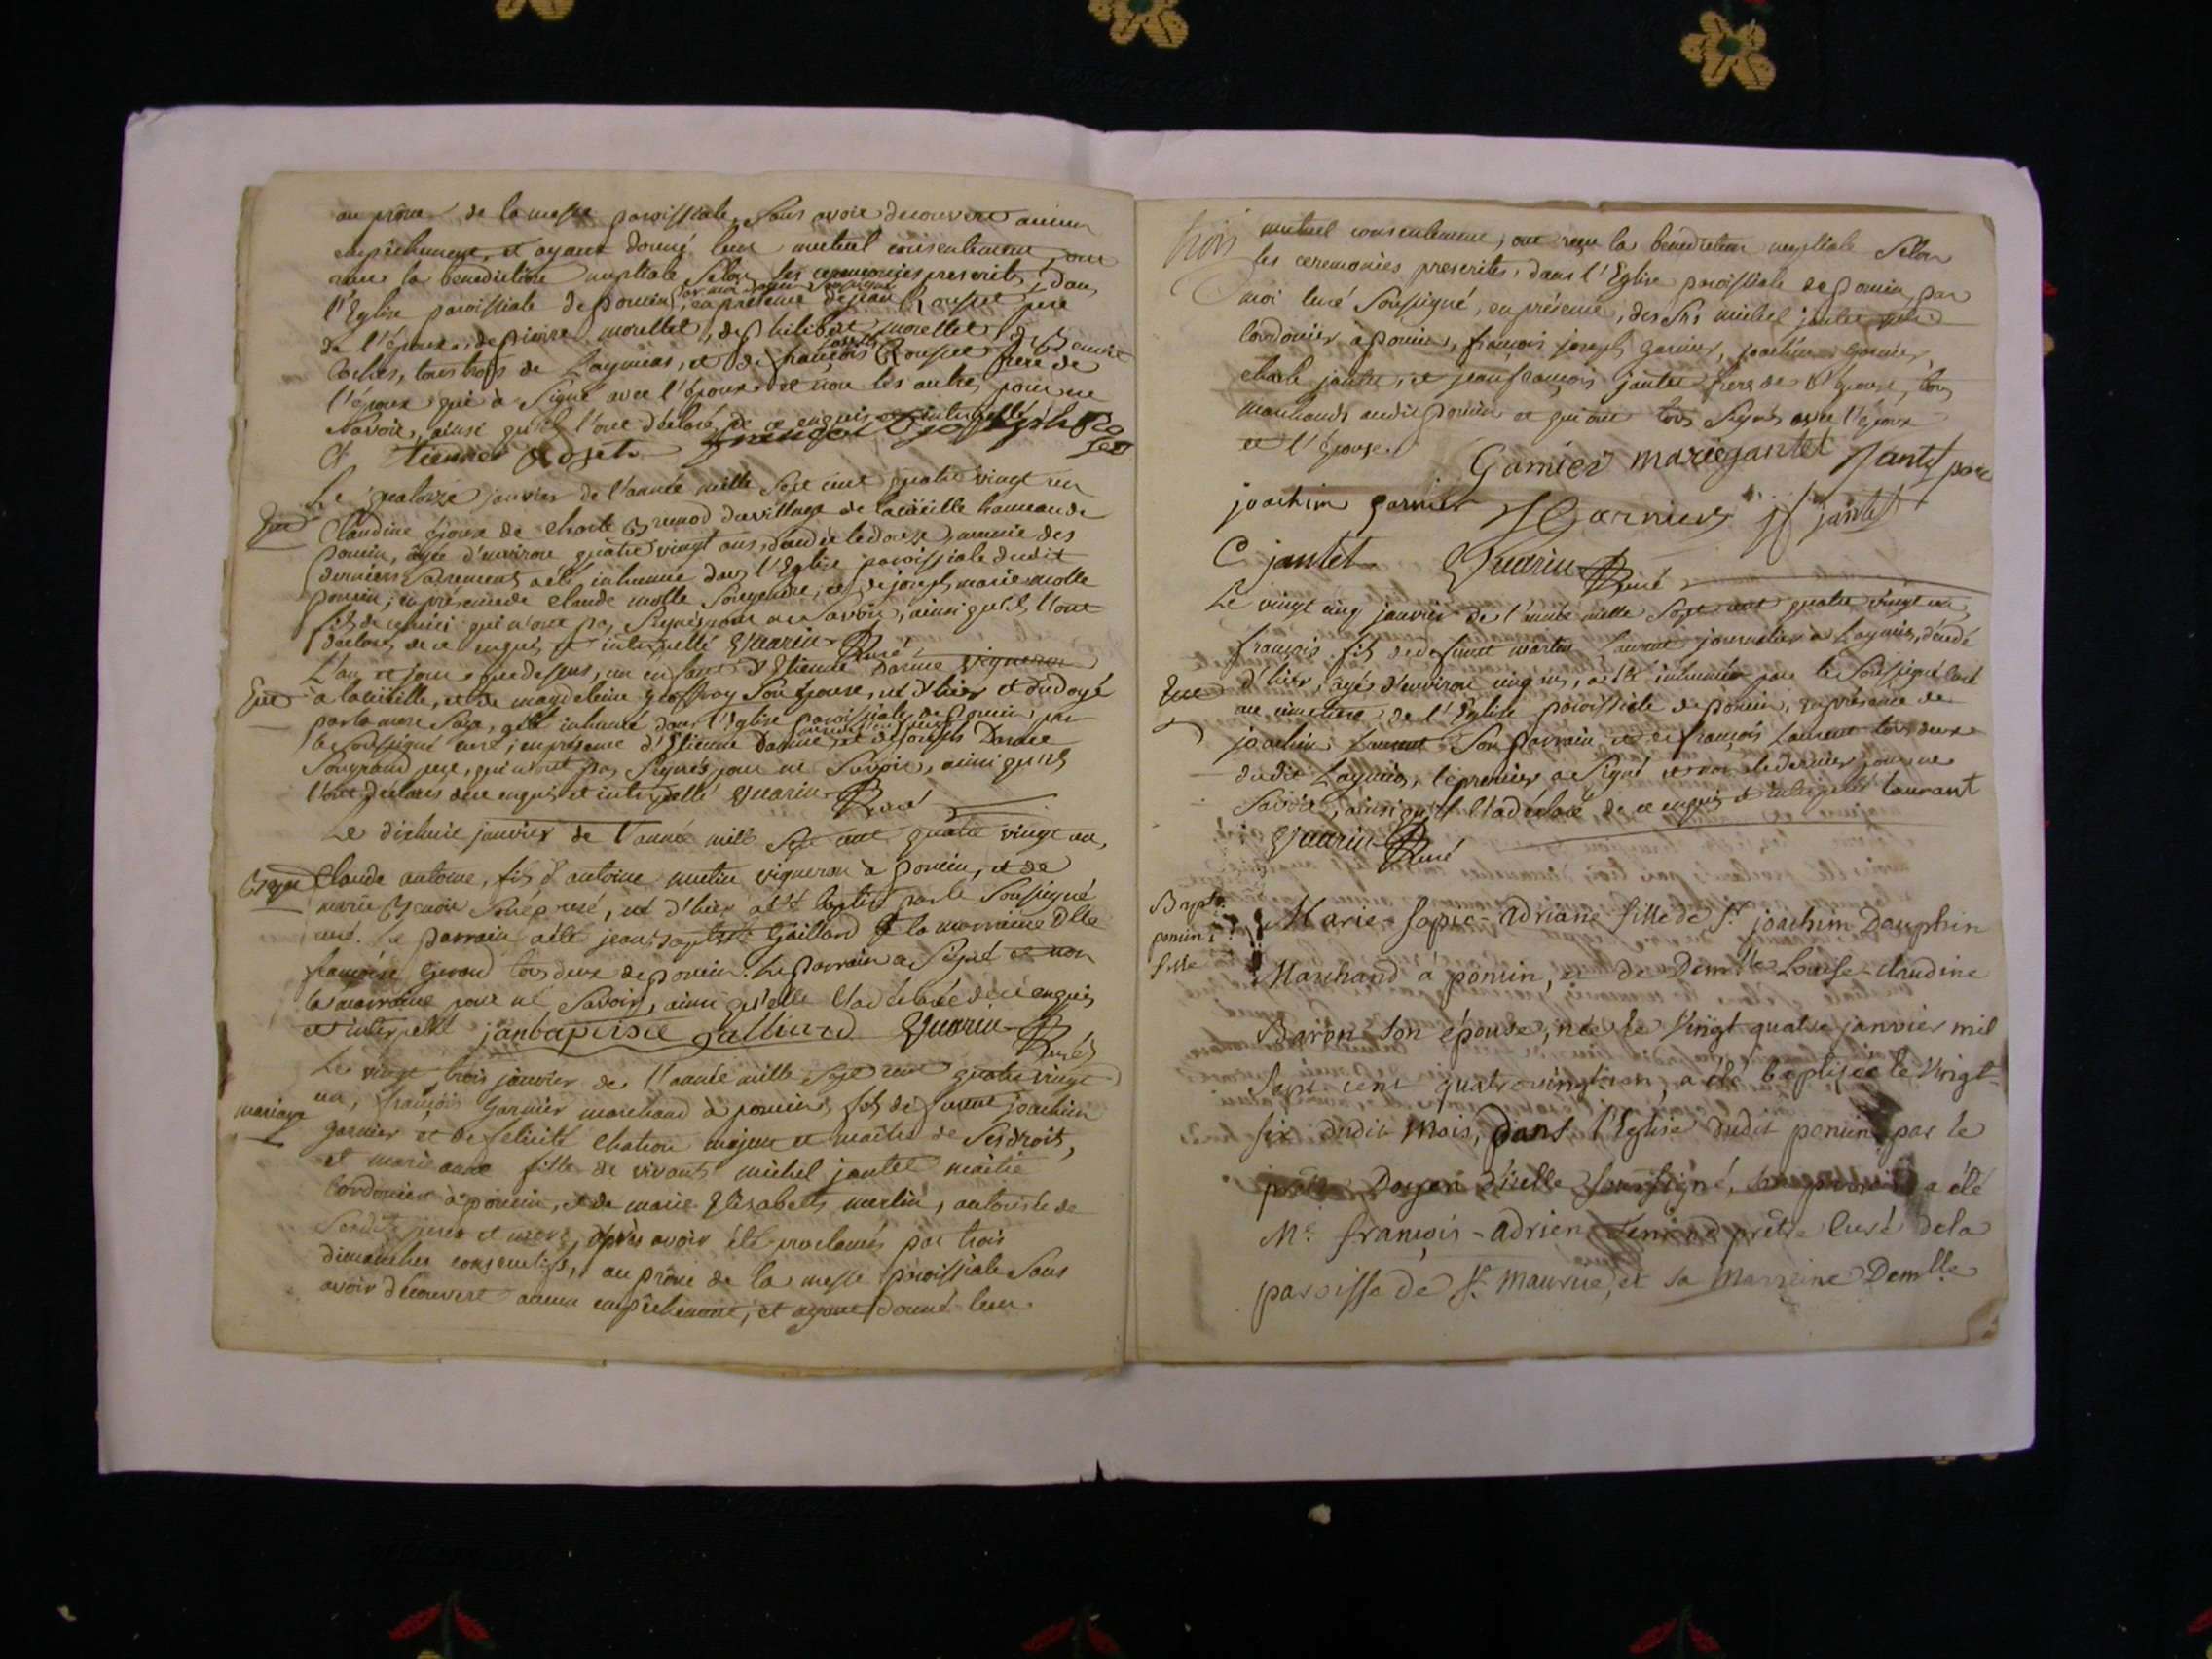 au prône de la messe paroissiale, sans avoir decouvert aucun
empêchement, et ayant donné leur mutuel consentement, ont
recu la benediction nuptiale selon les ceremonies prescrites, dans
l'Eglise paroissiale de poncin, par moi soussigné en présence de jean père
de l'épouse, de pierre morellet, de philibert morellet,
tous trois de Leymiat, et de françois joseph frere de
l'époux qui a signé avec l'époux et non les autres, pour ne
savoir, ainsi qu'ils l'ont déclaré de ce enquis et interpellé
françois joseph
Le quatorze janvier de l'année mille sept cent quatre vingt un
Claudine épouse de charle Brunod du village de la cueille hameau de
poncin, âgée d'environ quatre vingt ans, décédée le douze, munie des
derniers sacrements a été inhumée dans l'Eglise paroissiale dudit
poncin; en présence de claude molle son gendre, et de joseph marie molle
fils de celuici qui n'ont pas signés pour ne savoir, ainsi qu'ils l'ont
declaré de ce enquis et interpellé Guarin Curé
L'an et jour que dessus, un enfant d'Etienne Darme vigneron
à la cueille, et de magdeleine geoffray son épouse, né d'hier et ondoyé
par la mere sage, a été inhumé dans l'Eglise paroissiale de poncin, par
le soussigné curé, en présence d'Etienne Darme, et de joseph Darme
son grand pere, qui n'ont pas signés pour ne savoir, ainsi qu'ils
l'ont déclarés de ce enquis et interpellé Guarin Curé
Le dixhuit janvier de l'année mille sept cent quatre vingt un,
Claude antoine, fils d'antoine mutin vigneron à poncin, et de
marie son épouse, né d'hier a été baptisé par le soussigné
curé. Le parrain a été jean baptiste Gaillard & la marraine Dlle
françoise Gerand tous deux de poncin. Le parrain a signé et non
la marraine pour ne savoir, ainsi qu'elle l'a déclaré de ce enquis
et interpellé janbaptise galliard Guarin Curé
Le vingt trois janvier de l'année mille sept cent quatre vingt
mariage
un, françois Garnier marchand à poncin, fils de furent joachim
garnier et de felicité chation majeur et maître de ses droits,
et marie anne fille de vivants michel jantet maître
Cordonier à poncin, et de marie Elisabeth merlin, autorisée de
sesdits pere et mere, après avoir été proclamés par trois
dimanches consecutifs, au prône de la messe paroissiale sans
avoir découvert aucun empêchement, et ayant donné leur
trois
mutuel consentement, ont reçu la benediction nuptiale selon
les ceremonies prescrites, dans l'Eglise paroissiale de poncin, par
moi curé soussigné, en présence, des srs michel jantet
cordonier à poncin, françois joseph garnier, joachim garnier,
charle jantet, et jean françois jantet frere de l'épouse, tous
marchands audit poncin et qui ont tous signés avec l'époux
et l'épouse.
Garnier mariejantet Jantet pere
joachim garnier JGarnier jf jantet
C jantet Guarin Curé
Le vingt cinq janvier de l'année mille sept cent quatre vingt un,
françois fils de defunt martin Laurent journalier à Leymiat, décédé
d'hier, âgé d'environ cinq ans, a été inhumé par le soussigné curé
au cimetiere de l'Eglise paroissiale de poncin, en présence de
joachim Laurent son parrain et de françois Laurent tous deux
dudit Leymiat, le premier a signé et non le dernier pour ne
savoir, ainsi qu'il l'a declaré de ce enquis et interpellé laurant
Guarin Curé
Bapt.
poncin
fille
Marie-Sopie-adriane fille de Sr. joachim Dauphin
Marchand à poncin, et de Demlle Louise-claudine
Baron son épouse, née le Vingt quatre janvier mil
Sept cent quatrevingt un, a été baptisée le Vingt
six dudit Mois, dans l'Eglise dudit poncin par le
prêtre Doyen d'icelle soussigné, son parrain a été
Mr. françois-adrien prêtre Curé de la
paroisse de St. Maurice, et sa Marreine Demlle